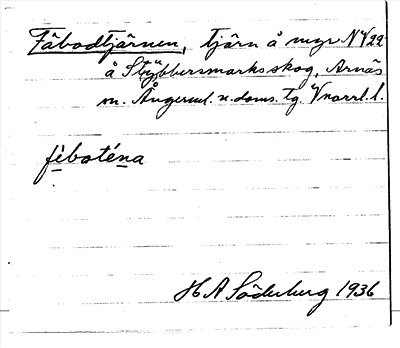 Fäbodtjärnen, tjärn å myr NV 22
å Stybbersmarks skog, Arnäs
sn. Ångerml. n. doms. tg. Vnorrl. l.
fèboténa
H A Söderberg 1936